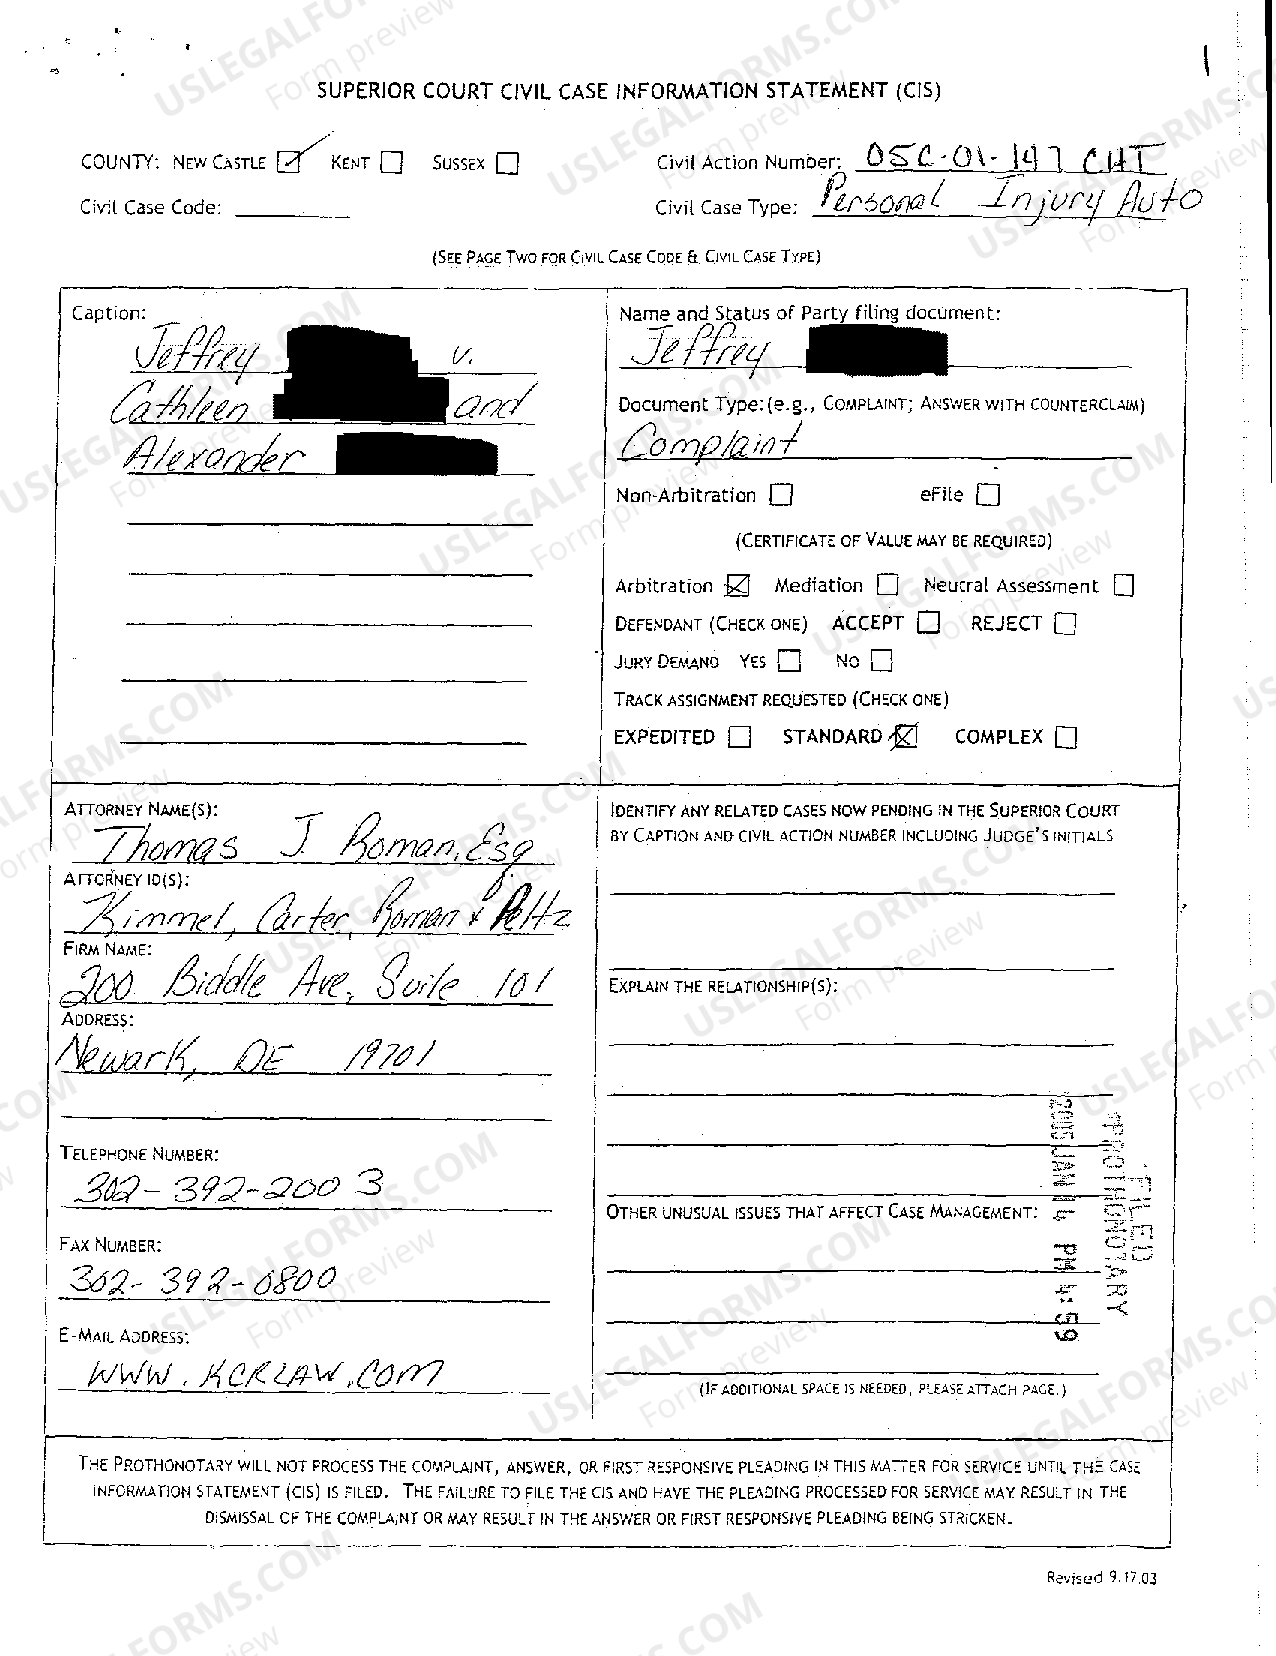 SUPERIOR COURT CIVIL CASE INFORMATION STATEMENT (CIS)
COUNTY: NEW CASTLE KENT SUSSEX
Civil Action Number: 05C-01-147 CHT
Civil Case Code:
Civil Case Type: Personal Injury Auto
(SEE PAGE TWO FOR CIVIL CASE CODE & CIVIL CASE TYPE)
Caption:
Jeffrey v.
Cathleen and
Alexander
Name and Status of Party filing document:
Jeffrey
Document Type:(e.g., COMPLAINT; ANSWER WITH COUNTERCLAIM)
Complaint
Non-Arbitration eFile
(CERTIFICATE OF VALUE MAY BE REQUIRED)
Arbitration Mediation Neutral Assessment
DEFENDANT (CHECK ONE) ACCEPT REJECT
JURY DEMAND YES NO
TRACK ASSIGNMENT REQUESTED (CHECK ONE)
EXPEDITED STANDARD COMPLEX
ATTORNEY NAME(S):
Thomas J. Roman, Esq
ATTORNEY ID(S):
Kimmel, Carter, Roman & Peltz
FIRM NAME:
200 Biddle Ave, Suite 101
ADDRESS:
Newark, DE 19701
TELEPHONE NUMBER:
302-392-2003
FAX NUMBER:
302-392-0800
E-MAIL ADDRESS:
WWW.KCRLAW.COM
IDENTIFY ANY RELATED CASES NOW PENDING IN THE SUPERIOR COURT
BY CAPTION AND CIVIL ACTION NUMBER INCLUDING JUDGE'S INITIALS
EXPLAIN THE RELATIONSHIP(S):
OTHER UNUSUAL ISSUES THAT AFFECT CASE MANAGEMENT:
FILED
PROTHONOTARY
2005 JAN 14 PM 4:59
(IF ADDITIONAL SPACE IS NEEDED, PLEASE ATTACH PAGE.)
THE PROTHONOTARY WILL NOT PROCESS THE COMPLAINT, ANSWER, OR FIRST RESPONSIVE PLEADING IN THIS MATTER FOR SERVICE UNTIL THE CASE
INFORMATION STATEMENT (CIS) IS FILED. THE FAILURE TO FILE THE CIS AND HAVE THE PLEADING PROCESSED FOR SERVICE MAY RESULT IN THE
DISMISSAL OF THE COMPLAINT OR MAY RESULT IN THE ANSWER OR FIRST RESPONSIVE PLEADING BEING STRICKEN.
Revised 9.17.03
USLEGALFORMS.COM
Form preview